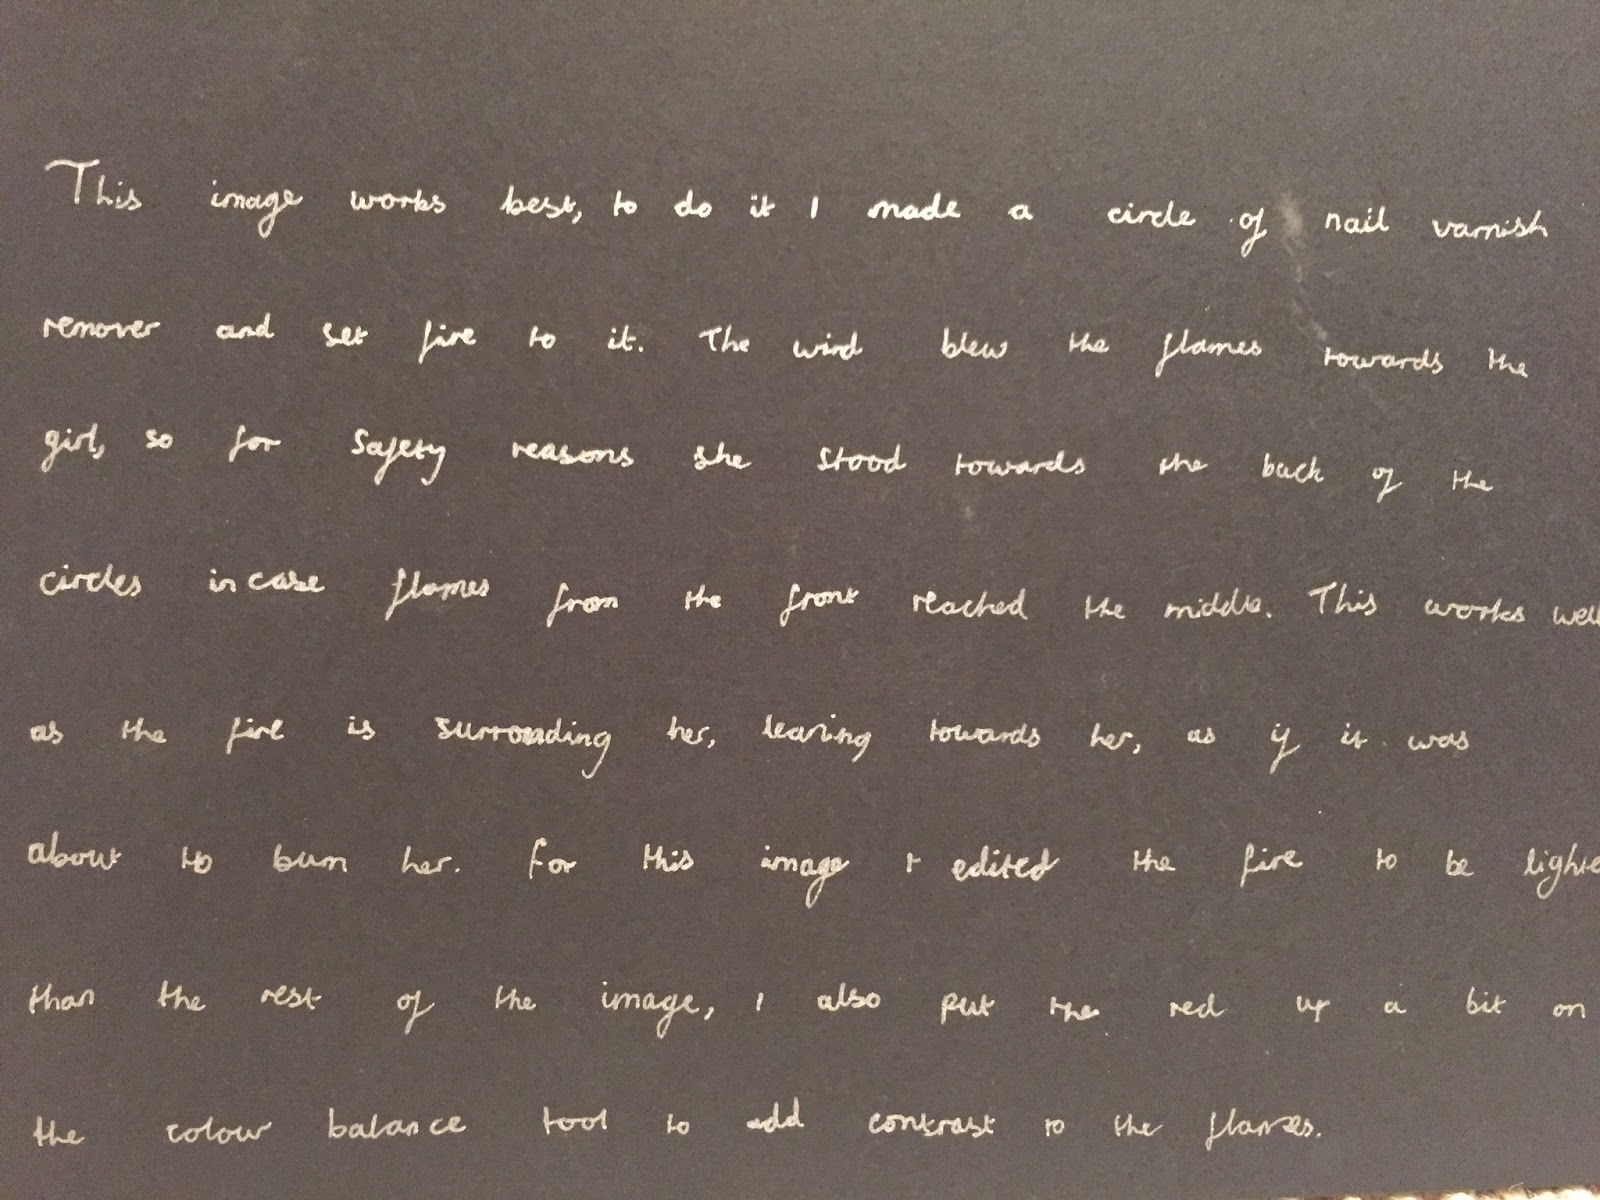 This image works best, to do it I made a circle of nail varnish
remover and set fire to it. The wind blew the flames towards the
girl, so for safety reasons she stood towards the back of the
circles in case flames from the front reached the middle. This works well
as the fire is surronding her, leaning towards her, as if it was
about to burn her. For this image I edited the fire to be lighte
than the rest of the image, I also put the red up a bit on
the colour balance tool to add contrast to the flames.